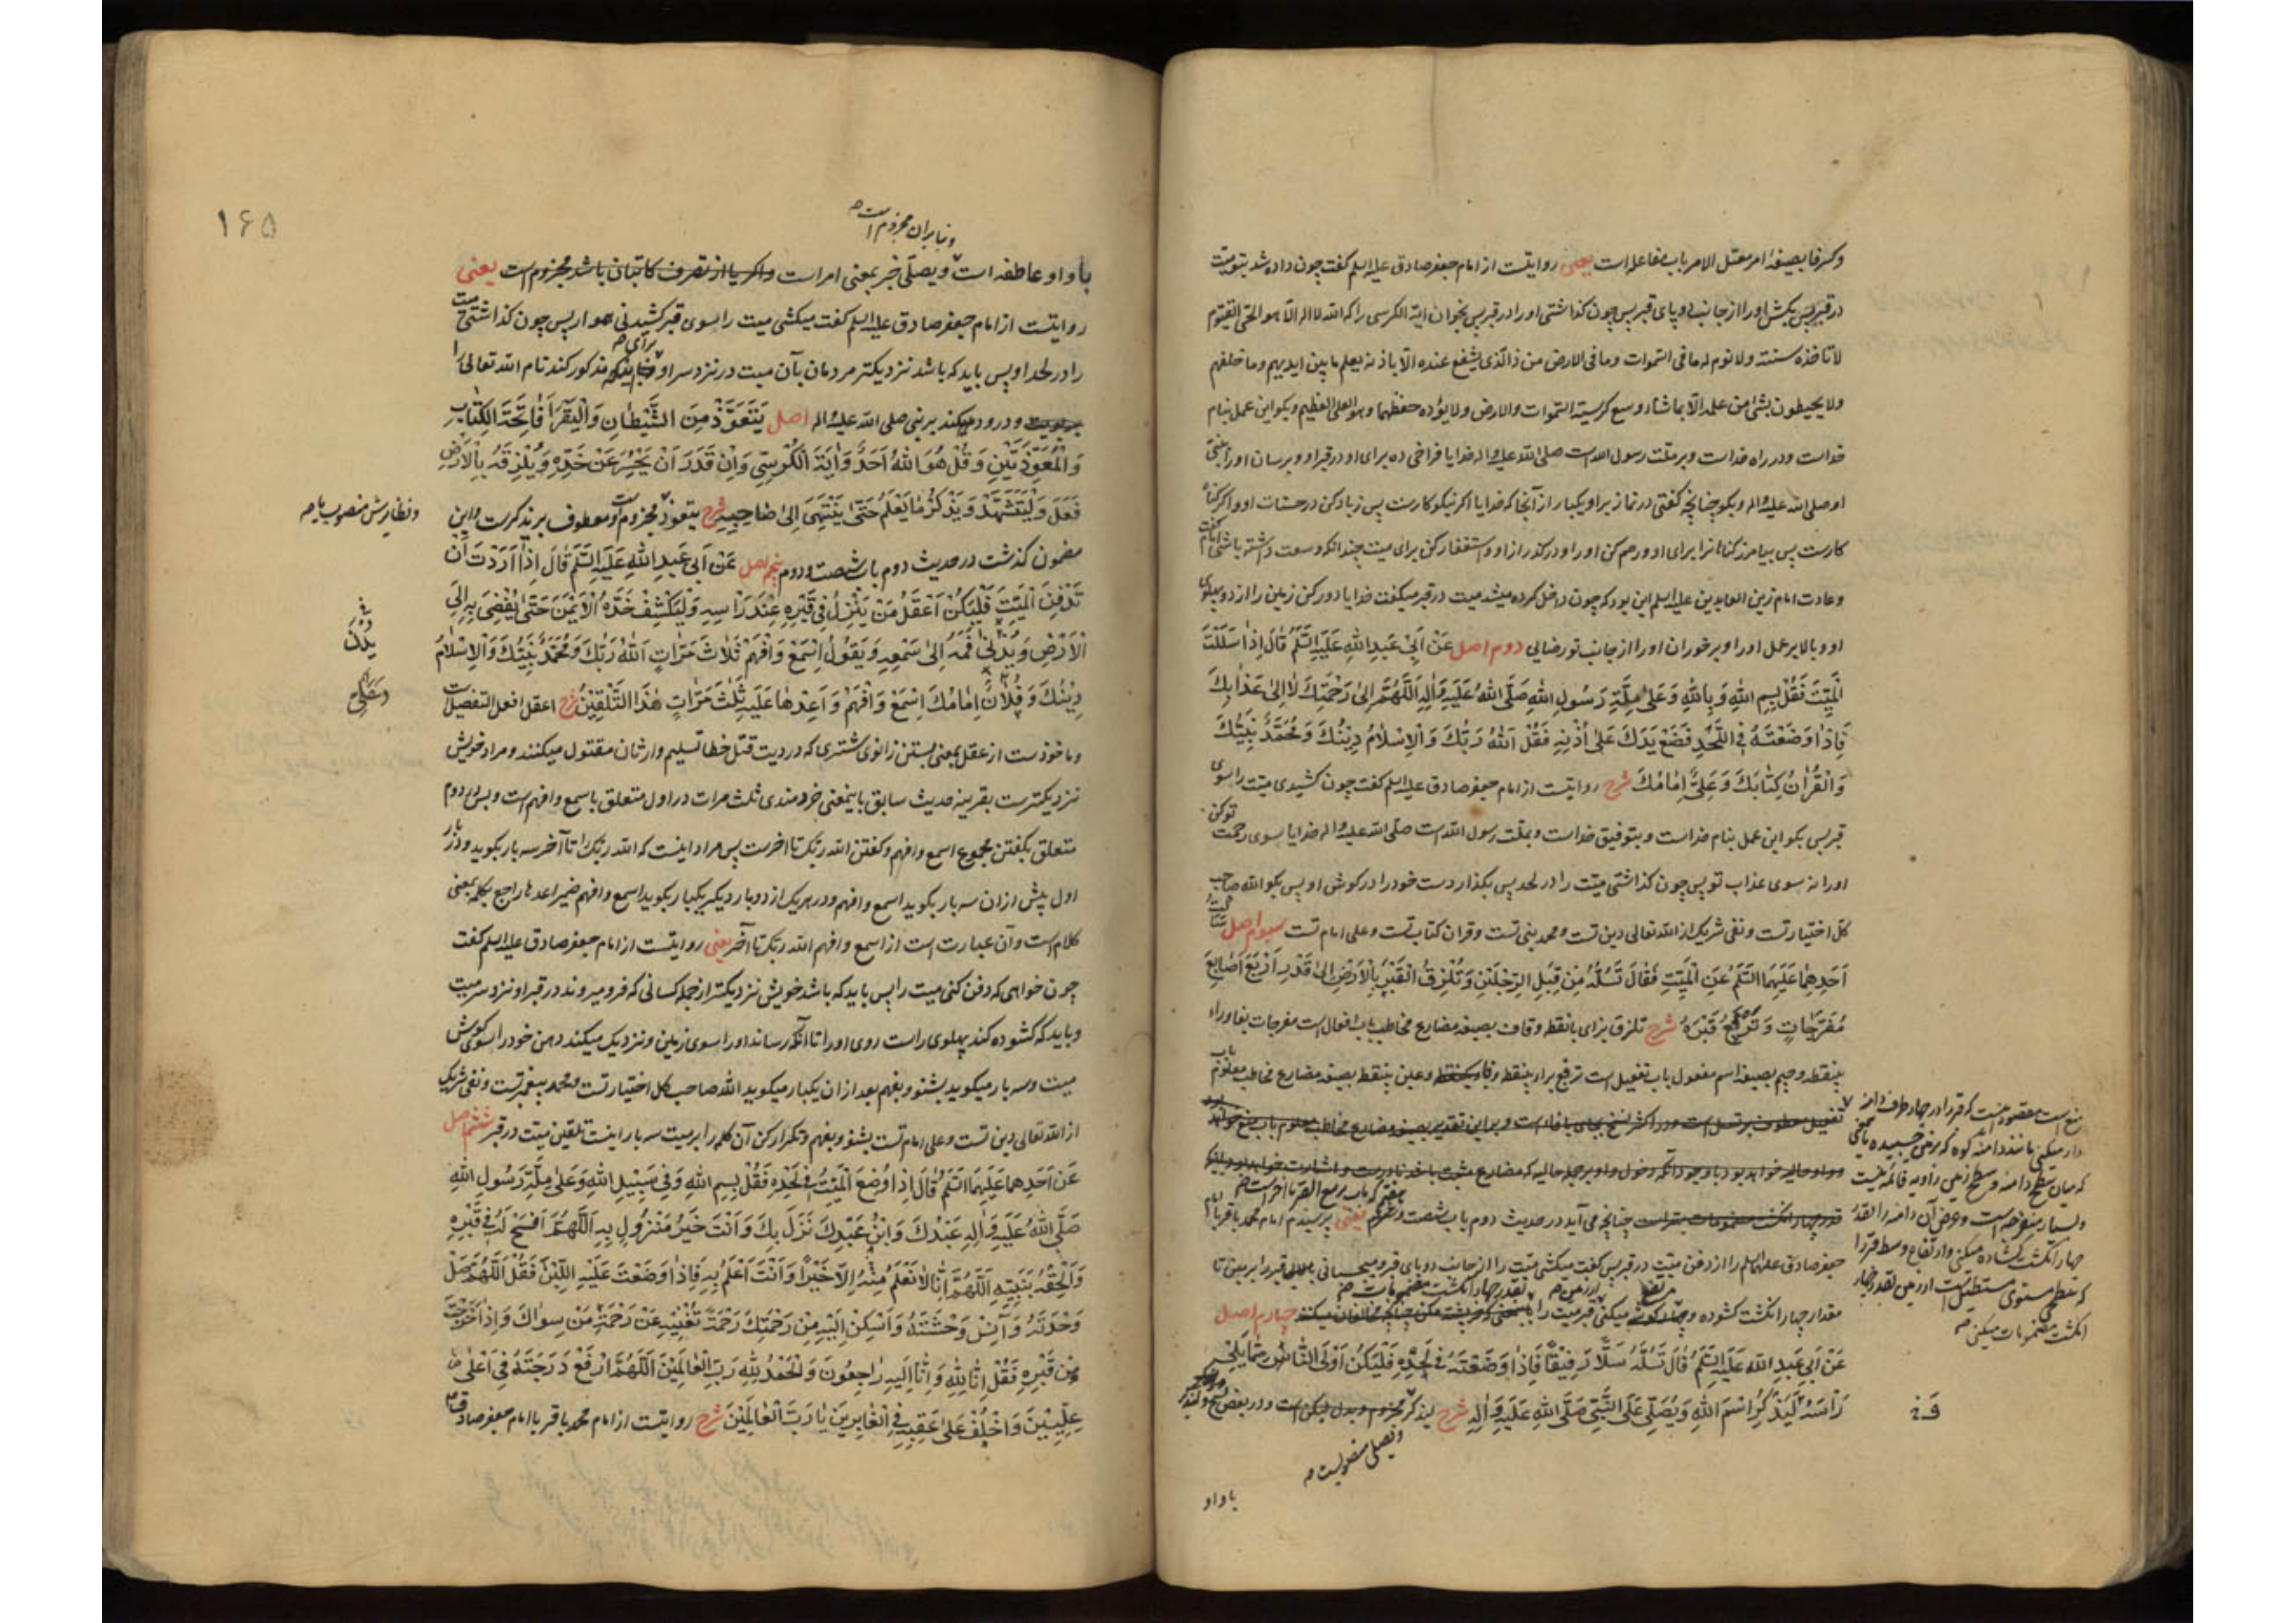 وکسر فا بصیغهٔ امر معتل اللام باب مفاعله است یعنی روایتست از امام جعفر صادق علیه السلم گفت چون داده شد بتو میت
در قبر پس بکش او را از جانب دو پای قبر پس چون گذاشتی او را در قبر پس بخوان آیة الکرسی را که الله لا اله الا هو الحی القیوم
لا تاخذه سنة ولا نوم له ما فی السموات وما فی الارض من ذا الذی یشفع عنده الا باذنه یعلم ما بین ایدیهم وما خلفهم
ولا یحیطون بشئ من علمه الا بما شاء وسع کرسیه السموات والارض ولا یؤده حفظهما وهو العلی العظیم و بگو این عمل بنام
خداست ودر راه خداست وبر ملت رسول الله است صلی الله علیه واله خدایا فراخی ده برای او در قبر او وبرسان او را بنبی
او صلی الله علیه واله وبگو چنانچه گفتی در نماز بر او یکبار از آنجا که خدایا اگر نیکوکارست پس زیاد کن در حسنات او و اگر گناه
کارست پس بیامرز گناهانرا برای او ورحم کن او را ودر گذر از او واستغفار کن برای میت چندانکه وسعت داشته باشی امام گفت
وعادت امام زین العابدین علیه السلم این بود که چون داخل کرده میشد میت در قبر میگفت خدایا دور کن زمین را از دو پهلوی
او وبالا بر عمل او را وبرخوران او را از جانب تو رضایی دوم اصل عَنْ اَبِی عَبدِ اللهِ عَلَیهِ السَّلَم قَالَ اِذَا سَلَلْتَ
الْمَیِّتَ فَقُلْ بِسمِ اللهِ وَبِاللهِ وَعَلیٰ مِلَّةِ رَسُولِ اللهِ صَلَّی اللهُ عَلَیهِ وَاٰلِهِ اَللّٰهُمَّ اِلیٰ رَحْمَتِكَ لَا اِلیٰ عَذَابِكَ
فَاِذَا وَضَعْتَهُ فِی اللَّحْدِ فَضَعْ یَدَكَ عَلیٰ اُذْنِهِ فَقُلْ اَللهُ رَبُّكَ وَالْاِسْلَامُ دِینُكَ وَمُحَمَّدٌ نَبِیُّكَ
وَالْقُرْاٰنُ کِتَابُكَ وَعَلِیٌّ اِمَامُكَ شرح روایتست از امام جعفر صادق علیه السلم گفت چون کشیدی میت را سوی
قبر پس بگو این عمل بنام خداست وبتوفیق خداست وبملت رسول الله است صلی الله علیه واله خدایا سوی رحمت تو کن
او را نه سوی عذاب تو پس چون گذاشتی میت را در لحد پس بگذار دست خود را در گوش او پس بگو الله صاحب
کل اختیار تست ونفی شریک از الله تعالی دین تست ومحمد نبی تست وقران کتاب تست وعلی امام تست سیوم اصل
اَحَدِهِمَا عَلَیهِمَا السَّلَمُ عَنِ الْمَیِّتِ فَقَالَ تَسُلُّهُ مِنْ قِبَلِ الرِّجْلَیْنِ وَتُلْزِقُ الْقَبْرَ بِالْاَرْضِ اِلیٰ قَدْرِ اَرْبَعِ اَصَابِعَ
مُفَرَّجَاتٍ وَتَرْفَعُ قَبْرَهُ شرح تلزق بزای با نقطه وقاف بصیغه مضارع مخاطب باب افعال است مفرجات بفا وراء
بینقطه وجیم بصیغه اسم مفعول باب تفعیل است ترفع براء بینقطه وفا وعین بینقطه بصیغه مضارع مخاطب معلوم باب
چنانچه می آید در حدیث دوم باب شصت یعنی پرسیدم امام محمد باقر یا امام
جعفر صادق علیهما السلم را از دفن میت در قبر پس گفت میکشی میت را از جانب دو پای قبر ومیچسبانی قبر را بزمین تا
مقدار چهار انگشت کشوده میکنی قبر میت را چهارم اصل
عَنْ اَبِی عَبدِ اللهِ عَلَیهِ السَّلَمُ قَالَ تَسُلُّهُ سَلًّا رَفِیقًا فَاِذَا وَضَعْتَهُ فِی لَحْدِهِ فَلْیَکُنْ اَوْلَی النَّاسِ مِمَّا یَلِی
رَأسَهُ لِیَذْکُرَ اسْمَ اللهِ وَیُصَلِّیَ عَلَی النَّبِیِّ صَلَّی اللهِ عَلَیهِ وَاٰلِهِ شرح لیذکر مجزوم وبدل لیکن است ودر بعض نسخ ولیذکر
ویصلی منصوبست
با واو
۱۶۵
وبنابران مجزوم است
با واو عاطفه است ویصلی خبر بمعنی امر است واگر یا از تصرف کاتبان باشد مجزوم است یعنی
روایتست از امام جعفر صادق علیه السلم گفت میکشی میت را سوی قبر کشیدنی هموار پس چون گذاشتی میت
را در لحد او پس باید که باشد نزدیکتر مردمان بآن میت در نزد سر او برای آنکه مذکور کند نام الله تعالی را
ودرود میکند بر نبی صلی الله علیه واله اصل یَتَعَوَّذْ مِنَ الشَّیْطَانِ وَلْیَقْرَأْ فَاتِحَةَ الْکِتَابِ
وَالْمُعَوِّذَتَیْنِ وَقُلْ هُوَ اللهُ اَحَدٌ وَاٰیَةَ الْکُرْسِیِّ وَاِنْ قَدَرَ اَنْ یَحْسِرَ عَنْ خَدِّهِ وَیُلْزِقَهُ بِالْاَرْضِ
فَعَلَ وَلْیَتَشَهَّدْ وَیَذْکُرْ مَا یَعْلَمُ حَتّیٰ یَنْتَهِیَ اِلیٰ صَاحِبِهِ شرح یتعوذ مجزوم است ومعطوف بر یذکرست واین
ونظایرش منصوب یا
مضمون گذشت در حدیث دوم باب شصت ودوم پنجم اصل عَنْ اَبِی عَبدِ اللهِ عَلَیهِ السَّلَمُ قَالَ اِذَا اَرَدْتَ اَنْ
تَدْفِنَ الْمَیِّتَ فَلْیَکُنْ اَعْقَلُ مَنْ یَنْزِلُ فِی قَبْرِهِ عِنْدَ رَأسِهِ وَلْیَکْشِفْ خَدَّهُ الْاَیْمَنَ حَتّیٰ یُفْضِیَ بِهِ اِلَی
الْاَرْضِ وَیُدْنِیْ فَمَهُ اِلیٰ سَمْعِهِ وَیَقُولُ اِسْمَعْ وَافْهَمْ ثَلَاثَ مَرَّاتٍ اَللهُ رَبُّكَ وَمُحَمَّدٌ نَبِیُّكَ وَالْاِسْلَامُ
دِینُكَ وَفُلَانٌ اِمَامُكَ اِسْمَعْ وَافْهَمْ وَاَعِدْهَا عَلَیهِ ثَلٰثَ مَرَّاتٍ هٰذَا التَّلْقِیْنَ شرح اعقل افعل التفضیل است
وماخوذست از عقل بمعنی بستن زانوی شتری که در دیت قتل خطا تسلیم وارثان مقتول میکنند ومراد خویش
نزدیکترست بقرینه حدیث سابق یا بمعنی خردمندی ثلث مرات در اول متعلق باسمع وافهم است وبس ودر دوم
متعلق بگفتن مجموع اسمع وافهم وگفتن الله ربک تا آخرست پس مراد اینست که الله ربک را تا آخر سه بار بگوید ودر بار
اول پیش ازان سه بار بگوید اسمع وافهم ودر هریک از دو بار دیگر یکبار بگوید اسمع وافهم ضمیر اعدها راجع بکلمه بمعنی
کلام است وآن عبارت است از اسمع وافهم الله ربک تا آخر یعنی روایتست از امام جعفر صادق علیه السلم گفت
چون خواهی که دفن کنی میت را پس باید که باشد خویش نزدیکتر از جمله کسانی که فرو میروند در قبر او نزد سر میت
وباید که کشوده کند پهلوی راست روی او را تا آنکه رساند او را سوی زمین ونزدیک میکند دهن خود را سوی گوش
میت وسه بار میگوید بشنو وبفهم بعد ازان یکبار میگوید الله صاحب کل اختیار تست ومحمد پیغمبر تست ونفی شریک
از الله تعالی دین تست وعلی امام تست بشنو وبفهم وتکرار کن آن کلمه را بر میت سه بار اینست تلقین میت در قبر ششم اصل
عَنْ اَحَدِهِمَا عَلَیهِمَا السَّلَمُ قَالَ اِذَا وُضِعَ الْمَیِّتُ فِی لَحْدِهِ فَقُلْ بِسمِ اللهِ وَفِی سَبِیْلِ اللهِ وَعَلیٰ مِلَّةِ رَسُولِ اللهِ
صَلَّی اللهُ عَلَیهِ وَاٰلِهِ عَبْدُكَ وَابْنُ عَبْدِكَ نَزَلَ بِكَ وَاَنْتَ خَیْرُ مَنْزُولٍ بِهِ اَللّٰهُمَّ افْسَحْ لَهُ فِی قَبْرِهِ
وَاَلْحِقْهُ بِنَبِیِّهِ اَللّٰهُمَّ اِنَّا لَا نَعْلَمُ مِنْهُ اِلَّا خَیْرًا وَاَنْتَ اَعْلَمُ بِهِ فَاِذَا وَضَعْتَ عَلَیهِ اللَّبِنَ فَقُلْ اَللّٰهُمَّ صِلْ
وَحْدَتَهُ وَاٰنِسْ وَحْشَتَهُ وَاَسْکِنْ اِلَیْهِ مِنْ رَحْمَتِكَ رَحْمَةً تُغْنِیْهِ عَنْ رَحْمَةِ مَنْ سِوَاكَ وَاِذَا خَرَجْتَ
مِنْ قَبْرِهِ فَقُلْ اِنَّا لِلّٰهِ وَاِنَّا اِلَیهِ رَاجِعُونَ وَالْحَمْدُ لِلّٰهِ رَبِّ الْعَالَمِیْنَ اَللّٰهُمَّ ارْفَعْ دَرَجَتَهُ فِی اَعْلیٰ
عِلِّیِّیْنَ وَاخْلُفْ عَلیٰ عَقِبِهِ فِی الْغَابِرِینَ یَا رَبَّ الْعَالَمِیْنَ شرح روایتست از امام محمد باقر یا امام جعفر صادق